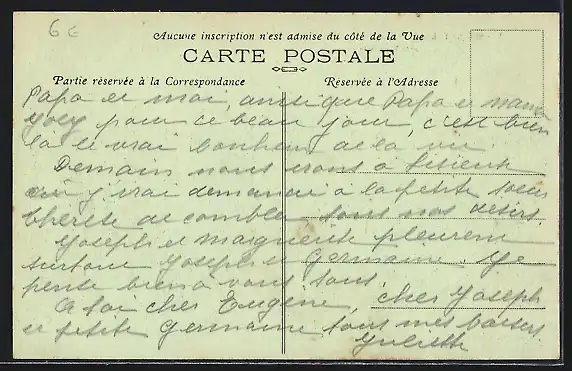 6€
Aucune inscription n'est admise du côté de la Vue
CARTE POSTALE
Partie réservée à la Correspondance
Réservée à l'Adresse
Papa et moi, ainsi que Papa et maman
pour ce beau jour, c'est bien
là le vrai bonheur de la vie
Demain nous irons à Lisieux
où j'irai demander à la petite soeur
Thérèse de combler tous nos désirs.
Joseph et Marguerite pleurent
surtout Joseph et Germaine. Je
pense bien à vous tous.
A toi cher Eugène, cher Joseph
et petite Germaine tous mes baisers
Juliette